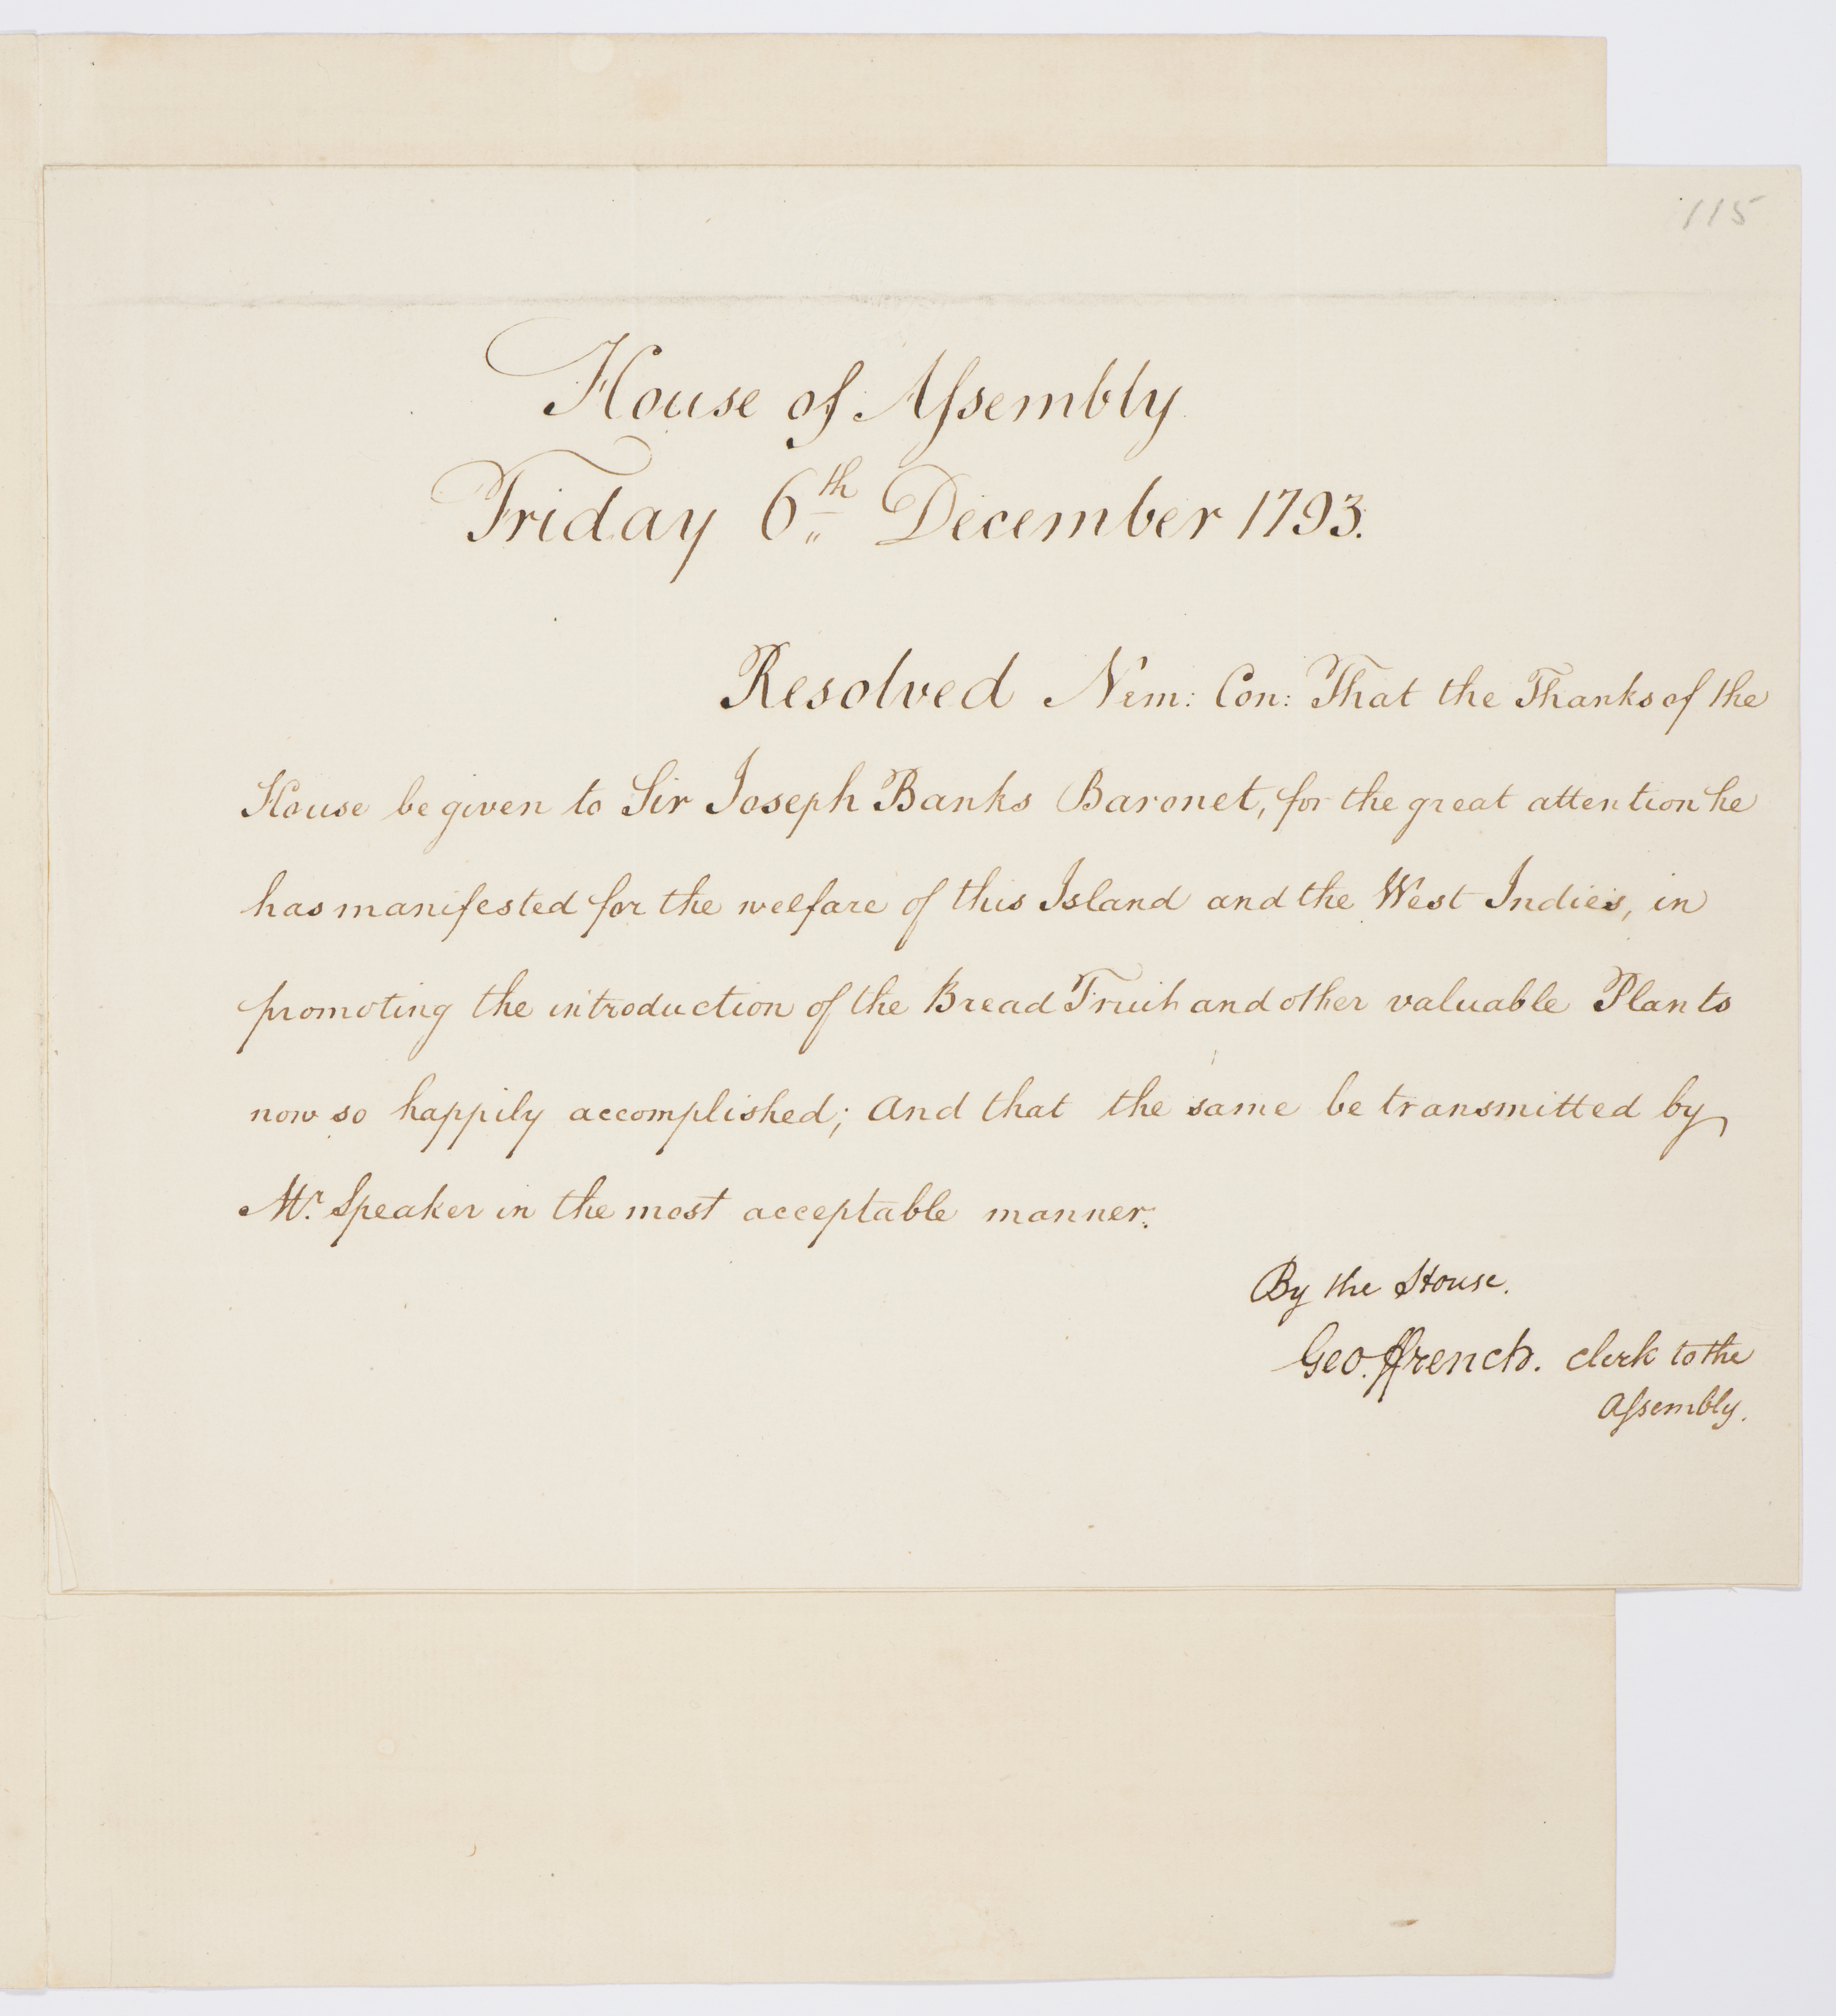 115
House of Aſsembly
Friday 6th December 1793.
Resolved Nem: Con: That the Thanks of the
House be given to Sir Joseph Banks Baronet, for the great attention he
has manifested for the welfare of this Island and the West Indies, in
promoting the introduction of the Bread Fruit and other valuable Plants
now so happily accomplished; And that the same be transmitted by
Mr. Speaker in the most acceptable manner.
By the House.
Geo. ffrench. Clerk to the
Aſsembly.